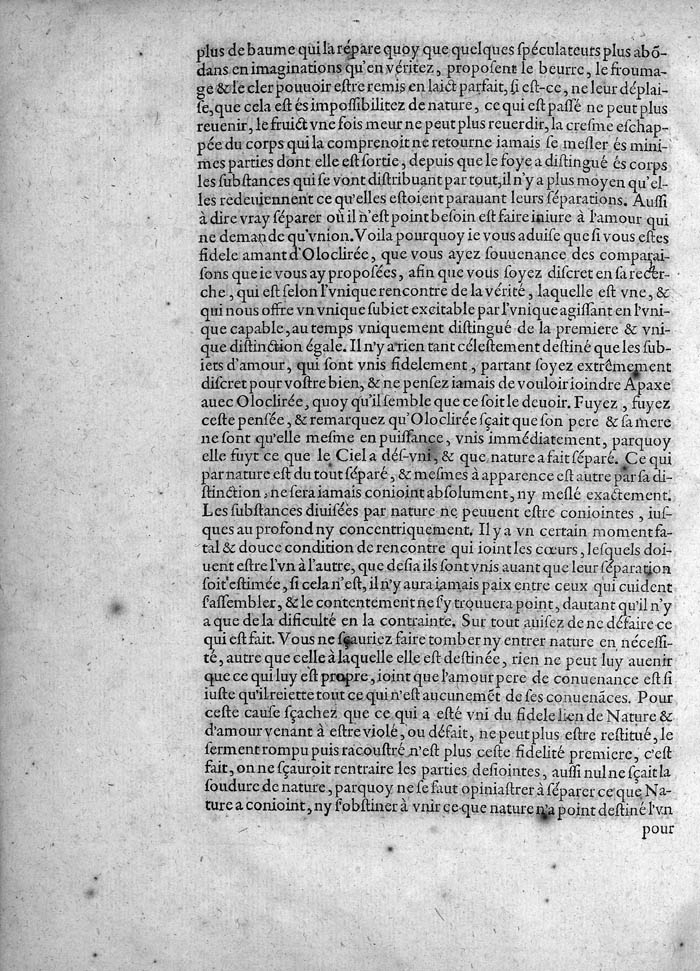 plus de baume qui la répare quoy que quelques ſpéculateurs plus abõ-
dans en imaginations qu'en véritez, propoſent le beurre, le frouma-
ge & le cler pouuoir eſtre remis en laict parfait, ſi eſt-ce, ne leur déplai-
ſe, que cela eſt és impoſſibilitez de nature, ce qui eſt paſſé ne peut plus
reuenir, le fruict vne fois meur ne peut plus reuerdir, la creſme eſchap-
pée du corps qui la comprenoit ne retourne iamais ſe meſler és mini-
mes parties dont elle eſt ſortie, depuis que le foye a diſtingué és corps
les ſubſtances qui ſe vont diſtribuant par tout, il n'y a plus moyen qu'el-
les redeuiennent ce qu'elles eſtoient parauant leurs ſéparations. Auſſi
à dire vray ſéparer où il n'eſt point beſoin eſt faire iniure à l'amour qui
ne demande qu'vnion. Voila pourquoy ie vous aduiſe que ſi vous eſtes
fidele amant d'Oloclirée, que vous ayez ſouuenance des comparai-
ſons que ie vous ay propoſées, afin que vous ſoyez diſcret en ſa recer-
che, qui eſt ſelon l'vnique rencontre de la vérité, laquelle eſt vne, &
qui nous offre vn vnique ſubiet excitable par l'vnique agiſſant en l'vni-
que capable, au temps vniquement diſtingué de la premiere & vni-
que diſtinction égale. Il n'y a rien tant céleſtement deſtiné que les ſub-
iets d'amour, qui ſont vnis fidelement, partant ſoyez extrêmement
diſcret pour voſtre bien, & ne penſez iamais de vouloir ioindre Apaxe
auec Oloclirée, quoy qu'il ſemble que ce ſoit le deuoir. Fuyez, fuyez
ceſte penſée, & remarquez qu'Oloclirée ſçait que ſon pere & ſa mere
ne ſont qu'elle meſme en puiſſance, vnis immédiatement, parquoy
elle fuyt ce que le Ciel a déſ-vni, & que nature a fait ſéparé. Ce qui
par nature eſt du tout ſéparé, & meſmes à apparence eſt autre par ſa di-
ſtinction, ne ſera iamais conioint abſolument, ny meſlé exactement.
Les ſubſtances diuiſées par nature ne peuuent eſtre coniointes, iuſ-
ques au profond ny concentriquement. Il y a vn certain moment fa-
tal & douce condition de rencontre qui ioint les cœurs, leſquels doi-
uent eſtre l'vn à l'autre, que deſia ils ſont vnis auant que leur ſéparation
ſoit eſtimée, ſi cela n'eſt, il n'y aura iamais paix entre ceux qui cuident
ſ'aſſembler, & le contentement ne ſ'y trouuera point, dautant qu'il n'y
a que de la dificulté en la contrainte. Sur tout auiſez de ne défaire ce
qui eſt fait. Vous ne ſçauriez faire tomber ny entrer nature en néceſſi-
té, autre que celle à laquelle elle eſt deſtinée, rien ne peut luy auenir
que ce qui luy eſt propre, ioint que l'amour pere de conuenance eſt ſi
iuſte qu'il reiette tout ce qui n'eſt aucunemẽt de ſes conuenãces. Pour
ceſte cauſe ſçachez que ce qui a eſté vni du fidele lien de Nature &
d'amour venant à eſtre violé, ou défait, ne peut plus eſtre reſtitué, le
ſerment rompu puis racouſtré n'eſt plus ceſte fidelité premiere, c'eſt
fait, on ne ſçauroit rentraire les parties deſiointes, auſſi nul ne ſçait la
ſoudure de nature, parquoy ne ſe faut opiniaſtrer à ſéparer ce que Na-
ture a conioint, ny ſ'obſtiner à vnir ce que nature n'a point deſtiné l'vn
pour